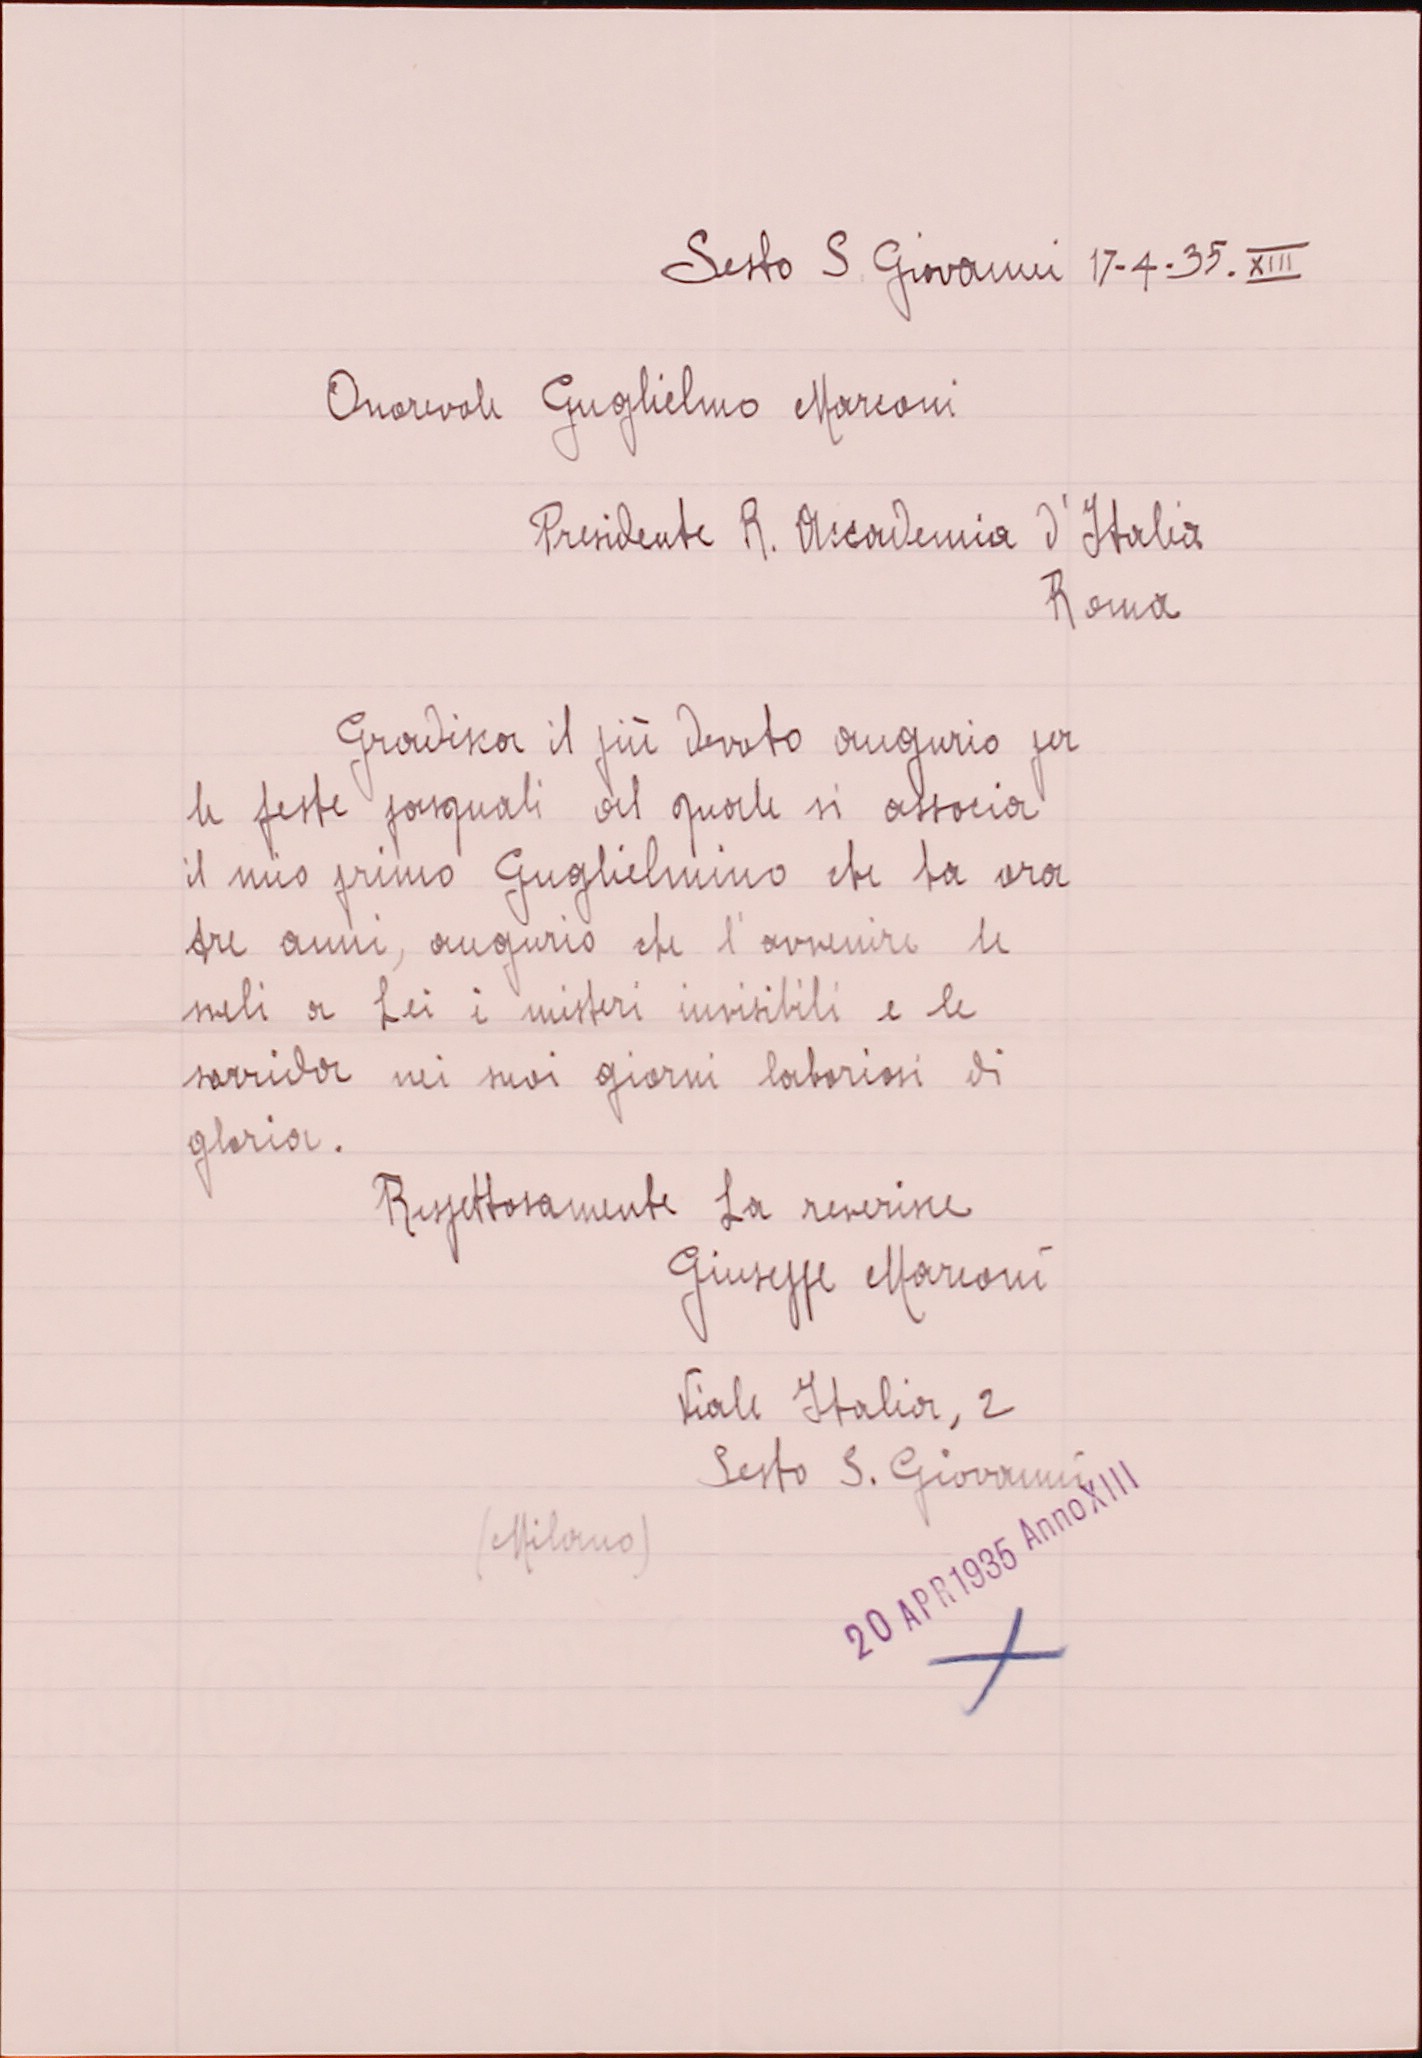 Sesto S. Giovanni 17-4-35. XIII
Onorevole Guglielmo Marconi
Presidente R. Accademia d'Italia
Roma
Gradisca il più devoto augurio per
le feste pasquali al quale si associa
il mio primo Guglielmino che ha ora
tre anni, augurio che l'avvenire le
sveli a Lei i misteri invisibili e le
sorrida nei suoi giorni laboriosi di
gloria.
Rispettosamente La reverisce
Giuseppe Marconi
Viale Italia, 2
Sesto S. Giovanni
(Milano)
20 APR 1935 Anno XIII